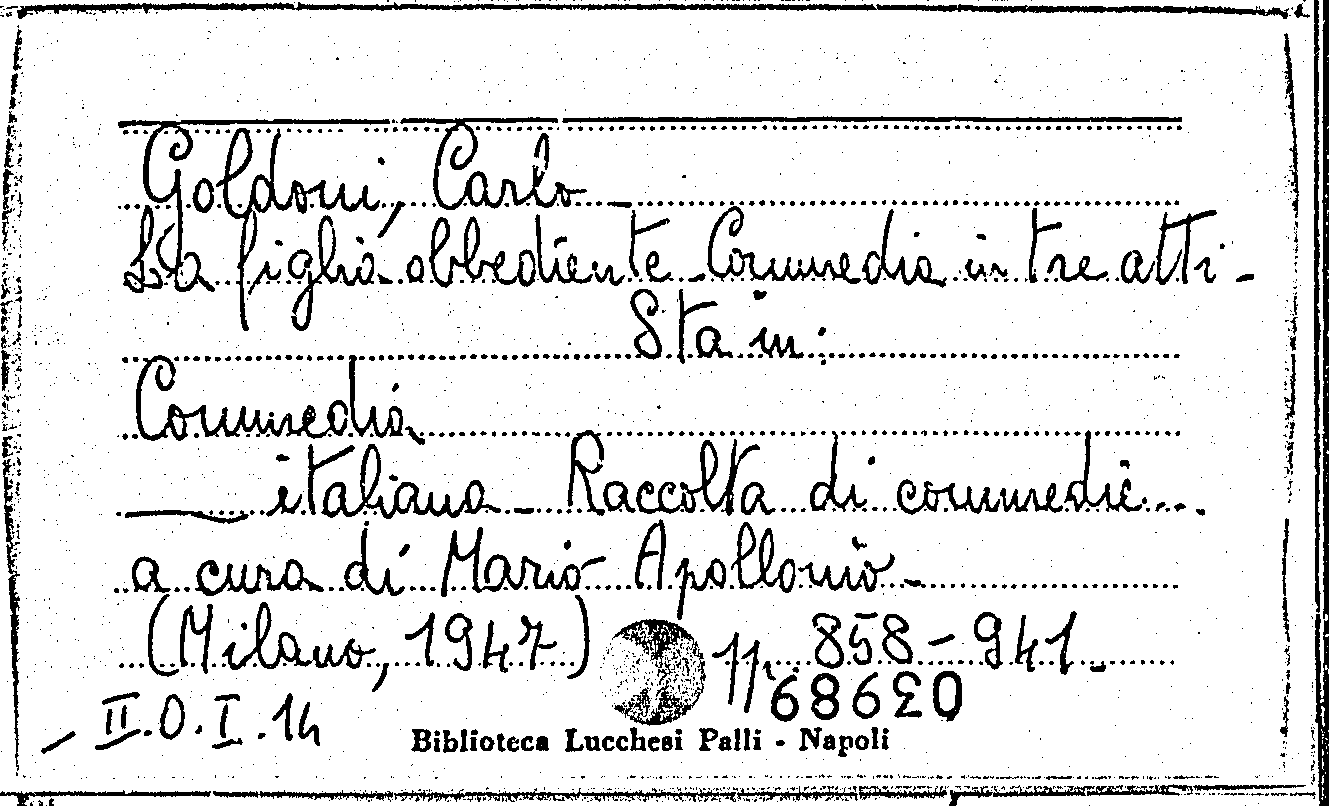 Goldoni, Carlo -
La figlia obbediente - Commedia in tre atti -
Sta in:
Commedia
___ italiana - Raccolta di commedie...
a cura di Mario Apollonio -
(Milano, 1947) pp. 858-941.
- II.O.I.14
Biblioteca Lucchesi Palli - Napoli